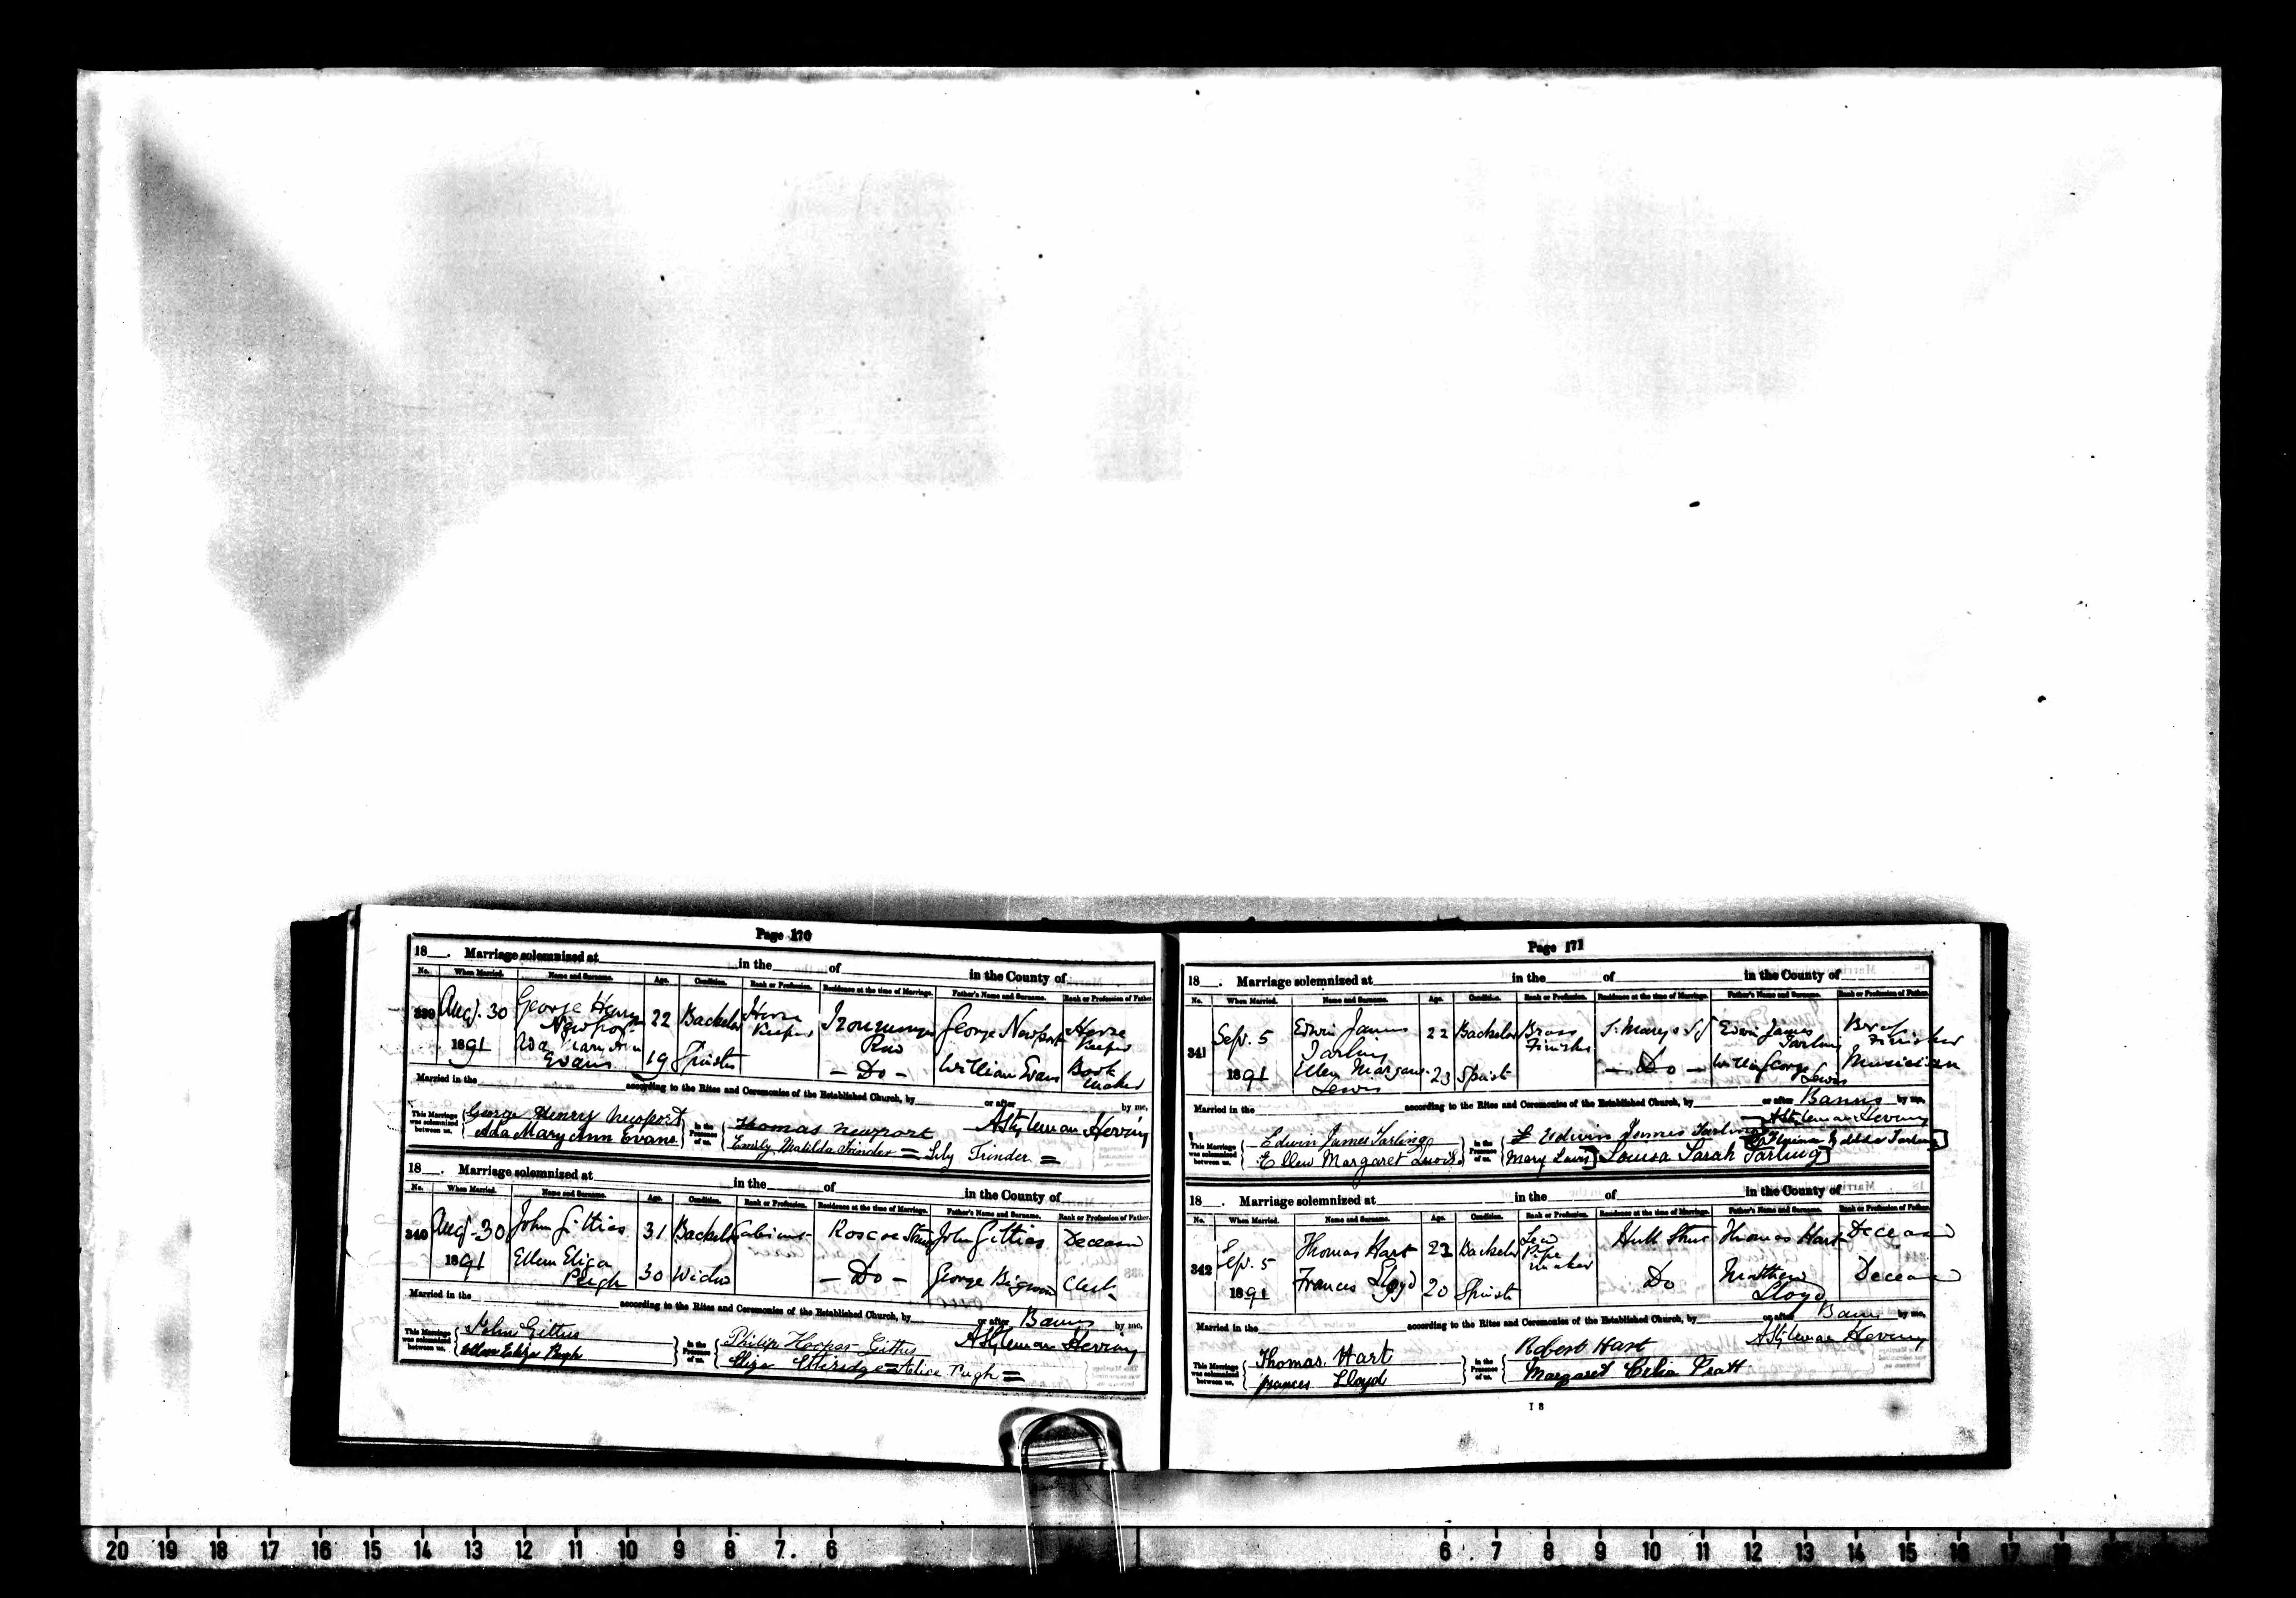 Page 170
18 . Marriage solemnized at in the of in the County of
No. When Married. Name and Surname. Age. Condition. Rank or Profession. Residence at the time of Marriage. Father's Name and Surname. Rank or Profession of Father.
339 Aug. 30 George Henry 22 Bachelor Horse George Newport Horse
Newport Keeper Row Keeper
1891 Ada Mary Ann 19 Spinster - Do - William Evans Book
Evans maker
Married in the according to the Rites and Ceremonies of the Established Church, by or after by me,
This Marriage was solemnized between us, George Henry Newport In the Presence of us, Thomas Newport
Ada Mary Ann Evans Emily Matilda Trinder = Lily Trinder =
18 . Marriage solemnized at in the of in the County of
No. When Married. Name and Surname. Age. Condition. Rank or Profession. Residence at the time of Marriage. Father's Name and Surname. Rank or Profession of Father.
340 Aug. 30 John 31 Bachelor Roscoe John
1891 Ellen Eliza 30 Widow - Do - George
Pugh
Married in the according to the Rites and Ceremonies of the Established Church, by or after Banns by me,
This Marriage was solemnized between us, John Gittus In the Presence of us, Philip Gittus
Ellen Eliza Pugh Eliza = Alice Pugh =
Page 171
18 . Marriage solemnized at in the of in the County of
No. When Married. Name and Surname. Age. Condition. Rank or Profession. Residence at the time of Marriage. Father's Name and Surname. Rank or Profession of Father.
341 Sep. 5 Edwin James 22 Bachelor Brass Edwin James Brass
Tarling Finisher Tarling Finisher
1891 Ellen Margaret 23 Spinst - Do - George Musician
Lewis Lewis
Married in the according to the Rites and Ceremonies of the Established Church, by or after Banns by me,
This Marriage was solemnized between us, Edwin James Tarling In the Presence of us, Edwin James Tarling
Ellen Margaret Lewis Mary Lewis Louisa Sarah Tarling
18 . Marriage solemnized at in the of in the County of
No. When Married. Name and Surname. Age. Condition. Rank or Profession. Residence at the time of Marriage. Father's Name and Surname. Rank or Profession of Father.
342 Sep. 5 Thomas Hart Bachelor Pipe Thomas Hart
maker
1891 Frances Lloyd 20 Spinst Do Matthew
Lloyd
Married in the according to the Rites and Ceremonies of the Established Church, by or after by me,
This Marriage was solemnized between us, Thomas Hart In the Presence of us, Robert Hart
Frances Lloyd Margaret Celia Pratt
20 19 18 17 16 15 14 13 12 11 10 9 8 7 6 6 7 8 9 10 11 12 13 14 15 16 17